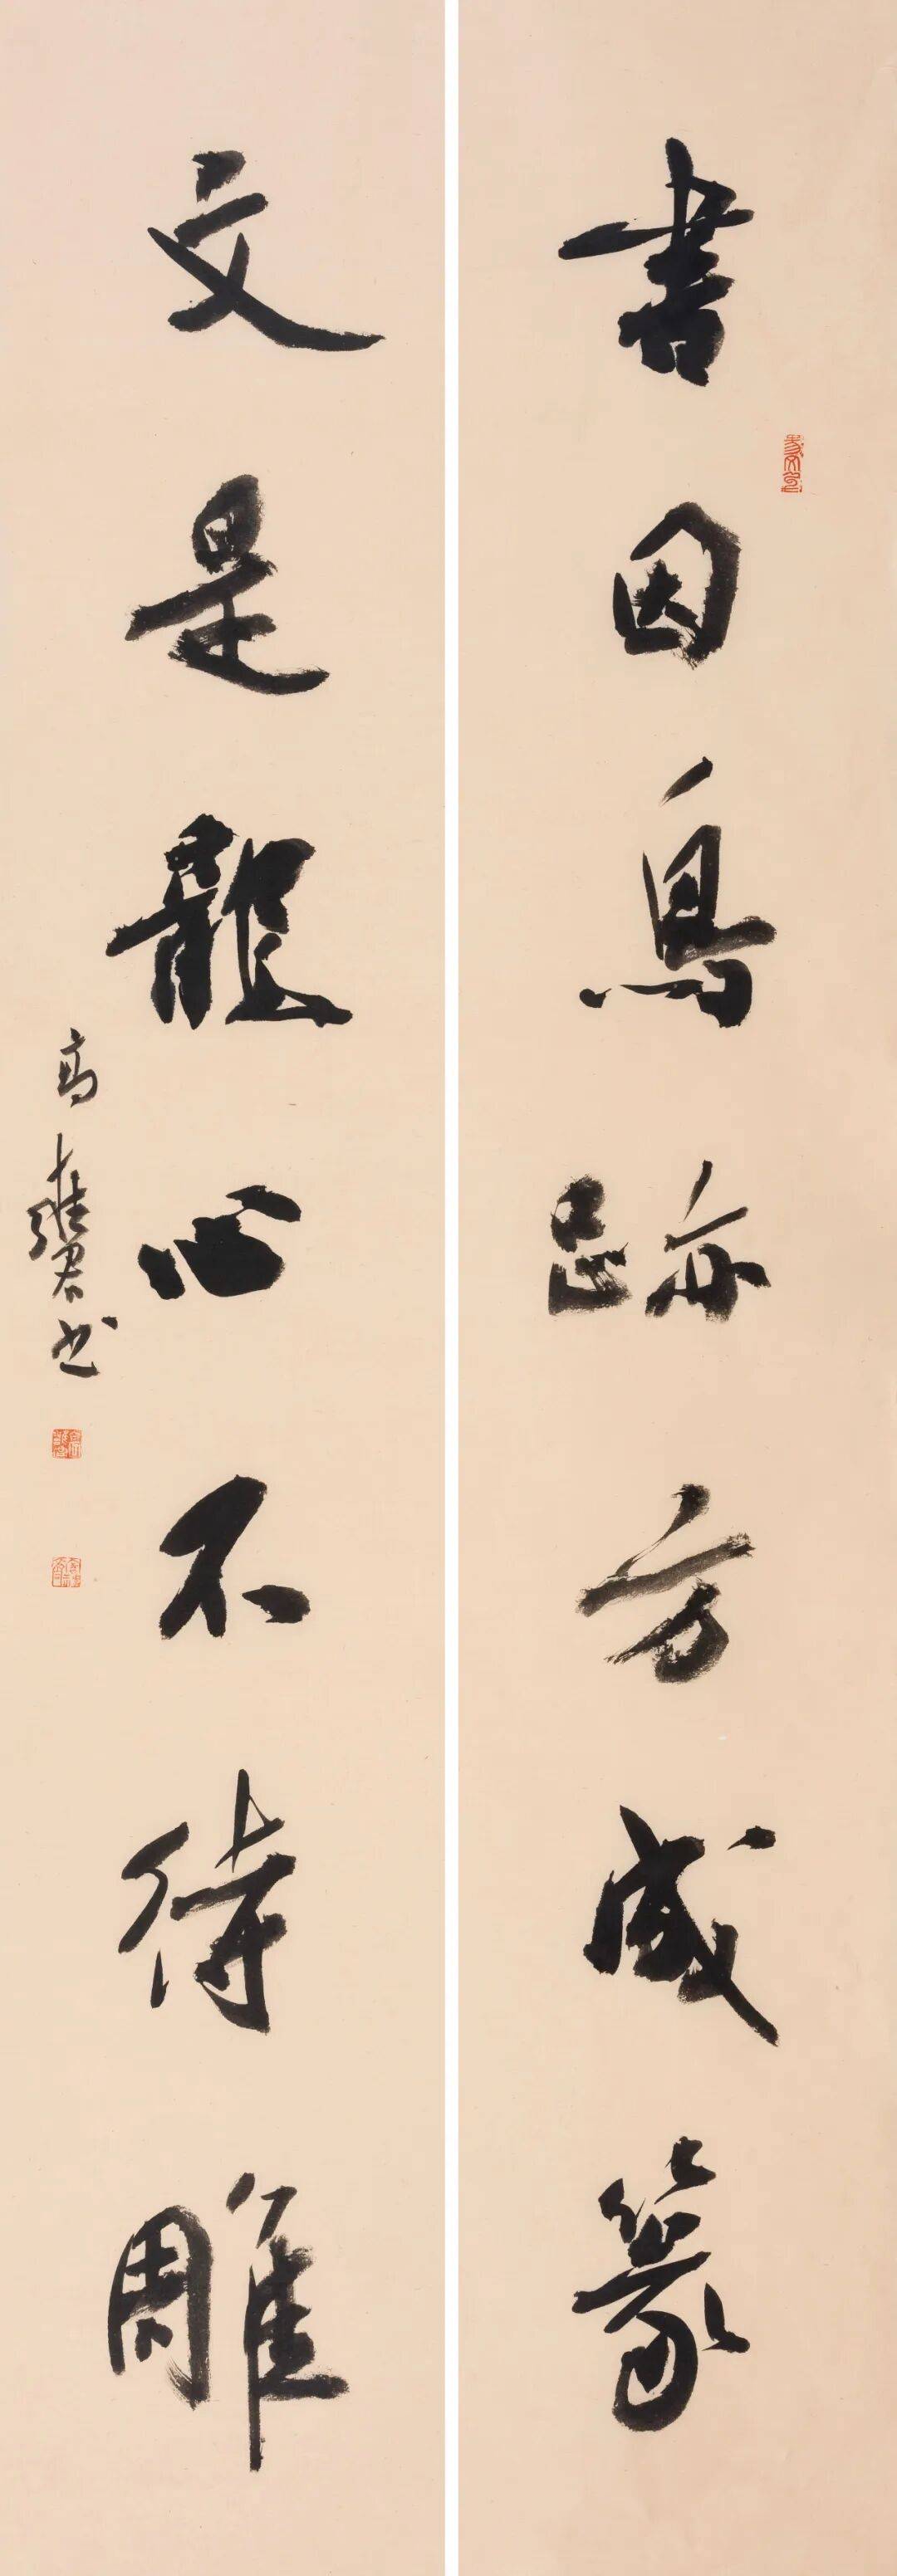 書因鳥跡方成篆
文是龍心不待雕
高雍君书